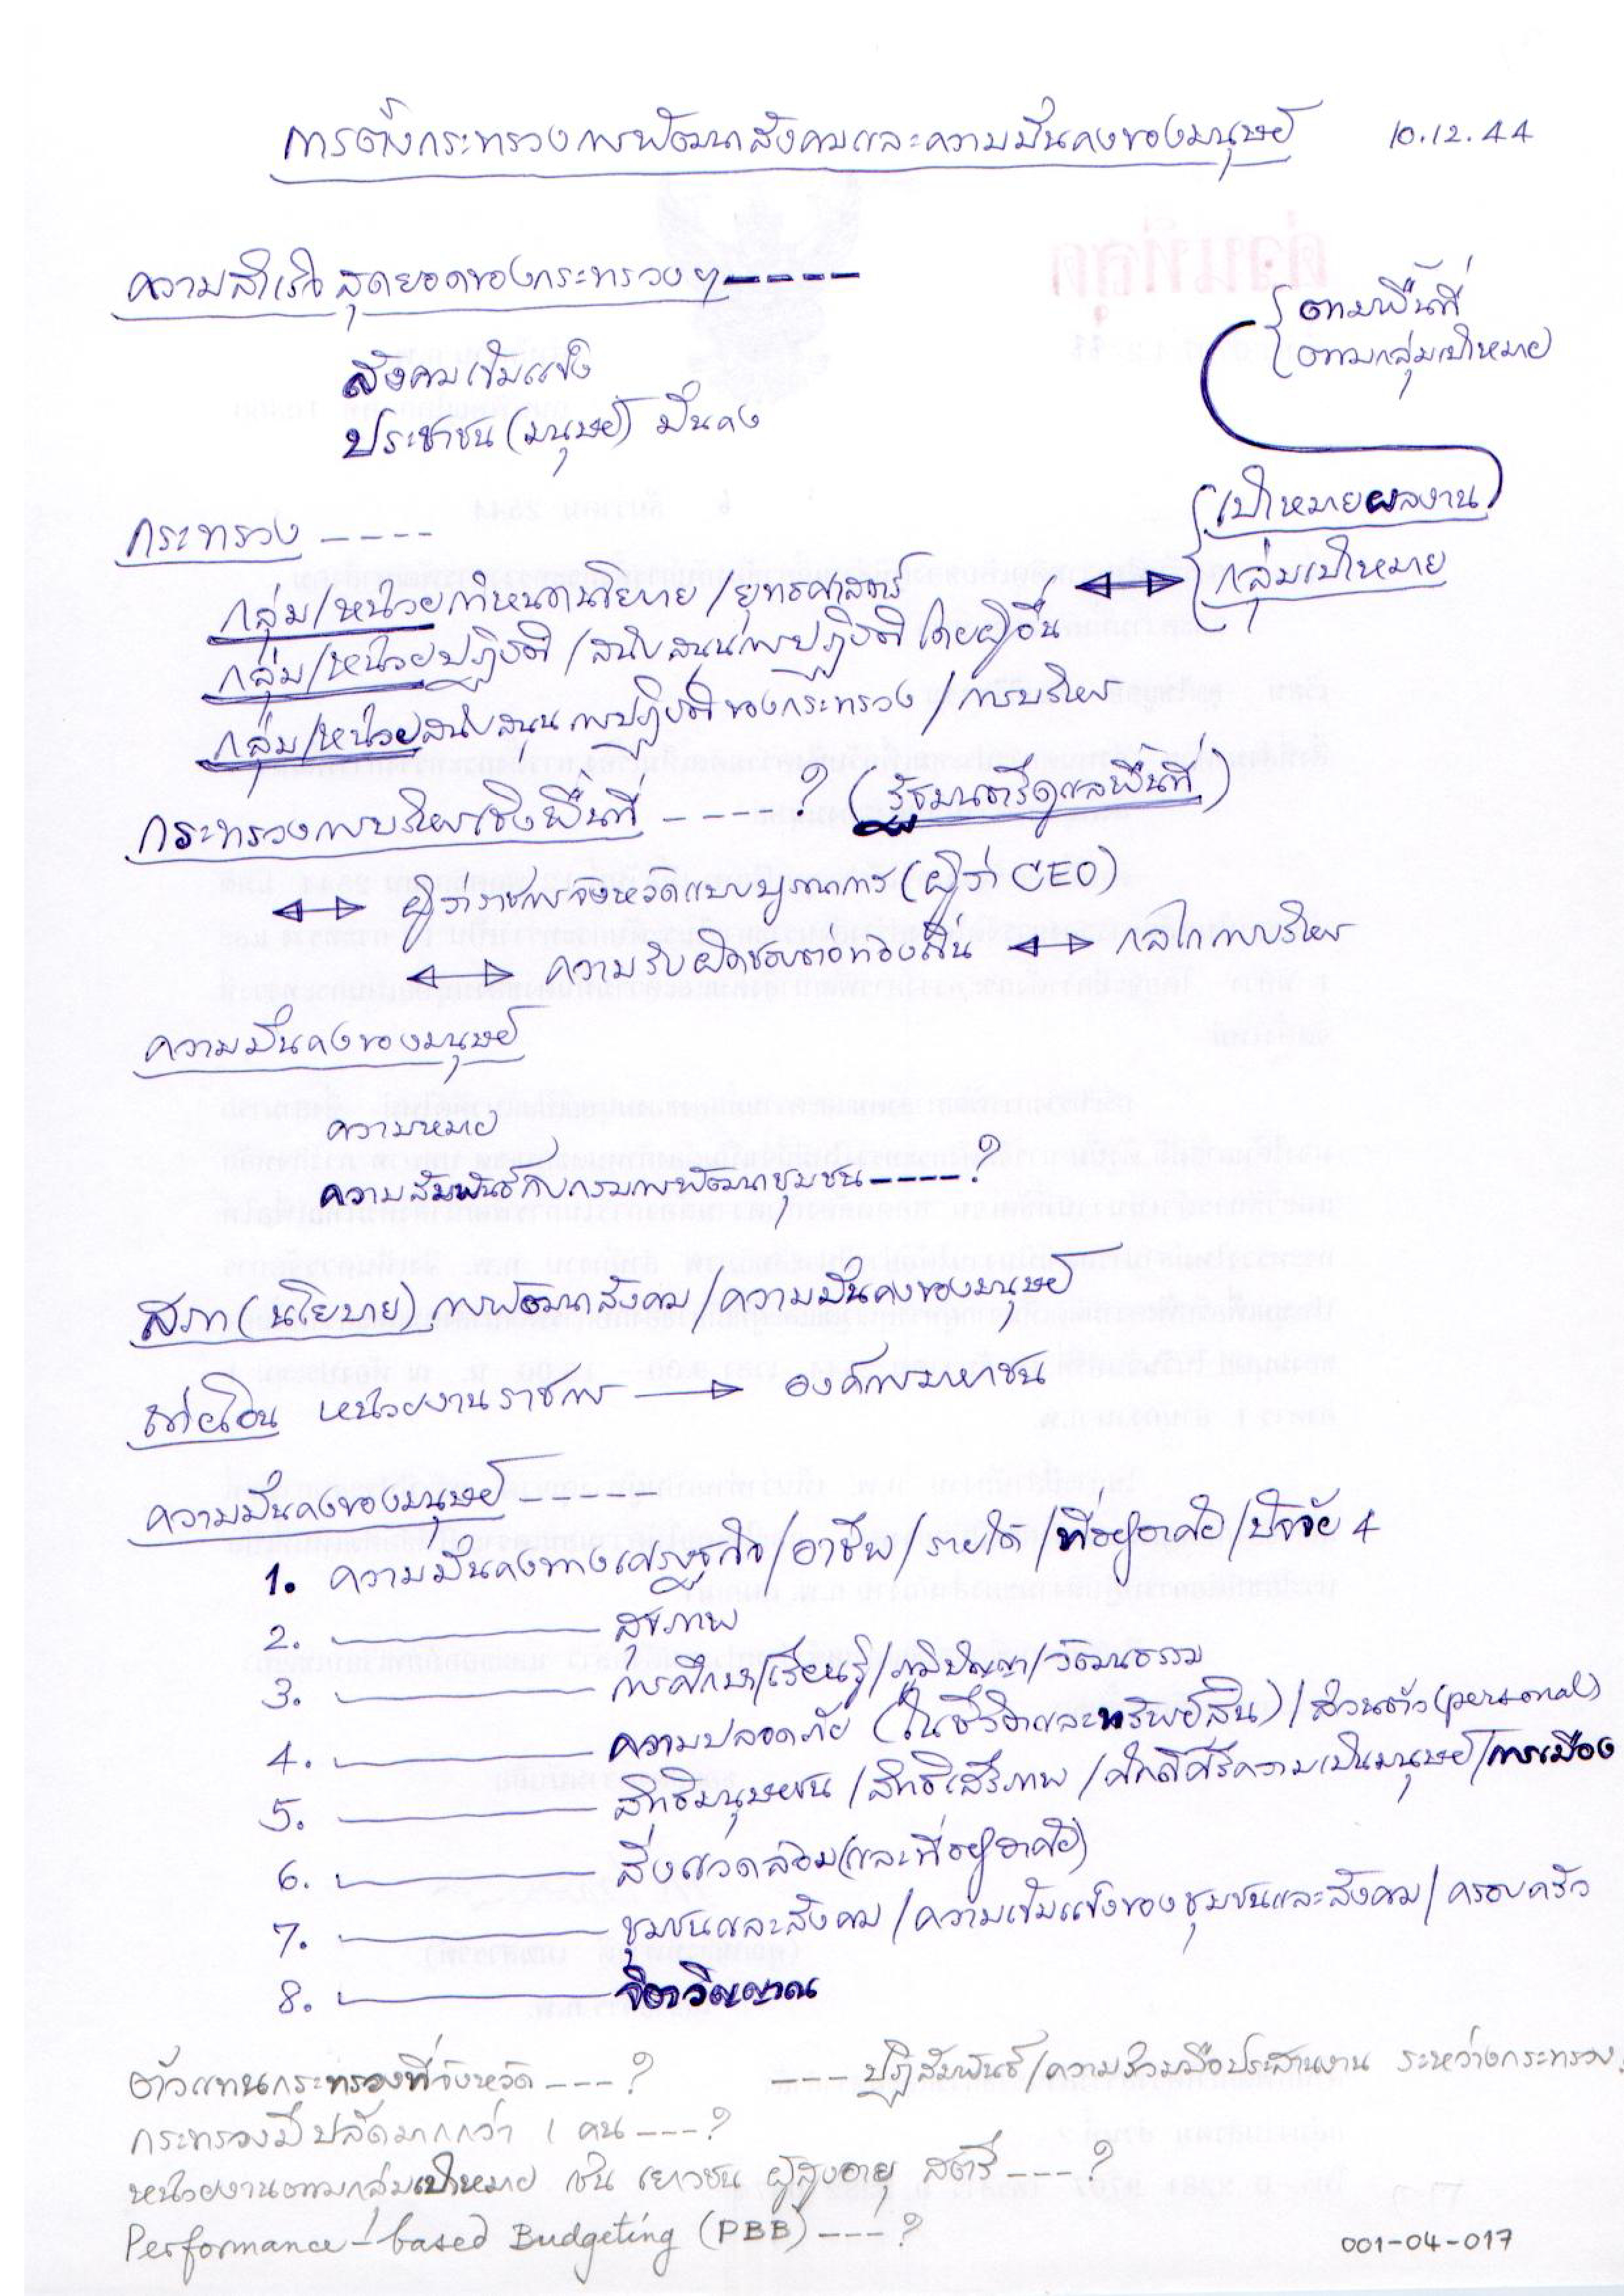 การตั้งกระทรวงการพัฒนาสังคมและความมั่นคงของมนุษย์ 10.12.44
ความสำเร็จสุดยอดของกระทรวงฯ -----
สังคมเข้มแข็ง
ประชาชน (มนุษย์) มั่นคง
ตามพื้นที่
ตามกลุ่มเป้าหมาย
เป้าหมายผลงาน
กลุ่มเป้าหมาย
กระทรวง ----
กลุ่ม/หน่วยกำหนดนโยบาย/ยุทธศาสตร์ ↔
กลุ่ม/หน่วยปฏิบัติ/สนับสนุนการปฏิบัติโดยผู้อื่น
กลุ่ม/หน่วยสนับสนุนการปฏิบัติของกระทรวง/การบริหาร
กระทรวงการบริหารเชิงพื้นที่ ----? (รัฐมนตรีดูแลพื้นที่)
↔ ผู้ว่าราชการจังหวัดแบบบูรณาการ (ผู้ว่า CEO)
↔ ความรับผิดชอบต่อท้องถิ่น ↔ กลไกการบริหาร
ความมั่นคงของมนุษย์
ความหมาย
ความสัมพันธ์กับกรมการพัฒนาชุมชน ----?
สภา (นโยบาย) การพัฒนาสังคม/ความมั่นคงของมนุษย์
ถ่ายโอน หน่วยงานราชการ → องค์การมหาชน
ความมั่นคงของมนุษย์ -----
1. ความมั่นคงทางเศรษฐกิจ/อาชีพ/รายได้/ที่อยู่อาศัย/ปัจจัย 4
2. ———— สุขภาพ
3. ———— การศึกษา/เรียนรู้/ภูมิปัญญา/วัฒนธรรม
4. ———— ความปลอดภัย (ในชีวิตและทรัพย์สิน)/ส่วนตัว (personal)
5. ———— สิทธิมนุษยชน/สิทธิเสรีภาพ/ศักดิ์ศรีความเป็นมนุษย์/การเมือง
6. ———— สิ่งแวดล้อม (และที่อยู่อาศัย)
7. ———— ชุมชนและสังคม/ความเข้มแข็งของชุมชนและสังคม/ครอบครัว
8. ———— จิตวิญญาณ
ตัวแทนกระทรวงที่จังหวัด ---? --- ปฏิสัมพันธ์/ความร่วมมือประสานงาน ระหว่างกระทรวง
กระทรวงมีปลัดมากกว่า 1 คน ---?
หน่วยงานตามกลุ่มเป้าหมาย เช่น เยาวชน ผู้สูงอายุ สตรี ---?
Performance-based Budgeting (PBB) ---?
001-04-017